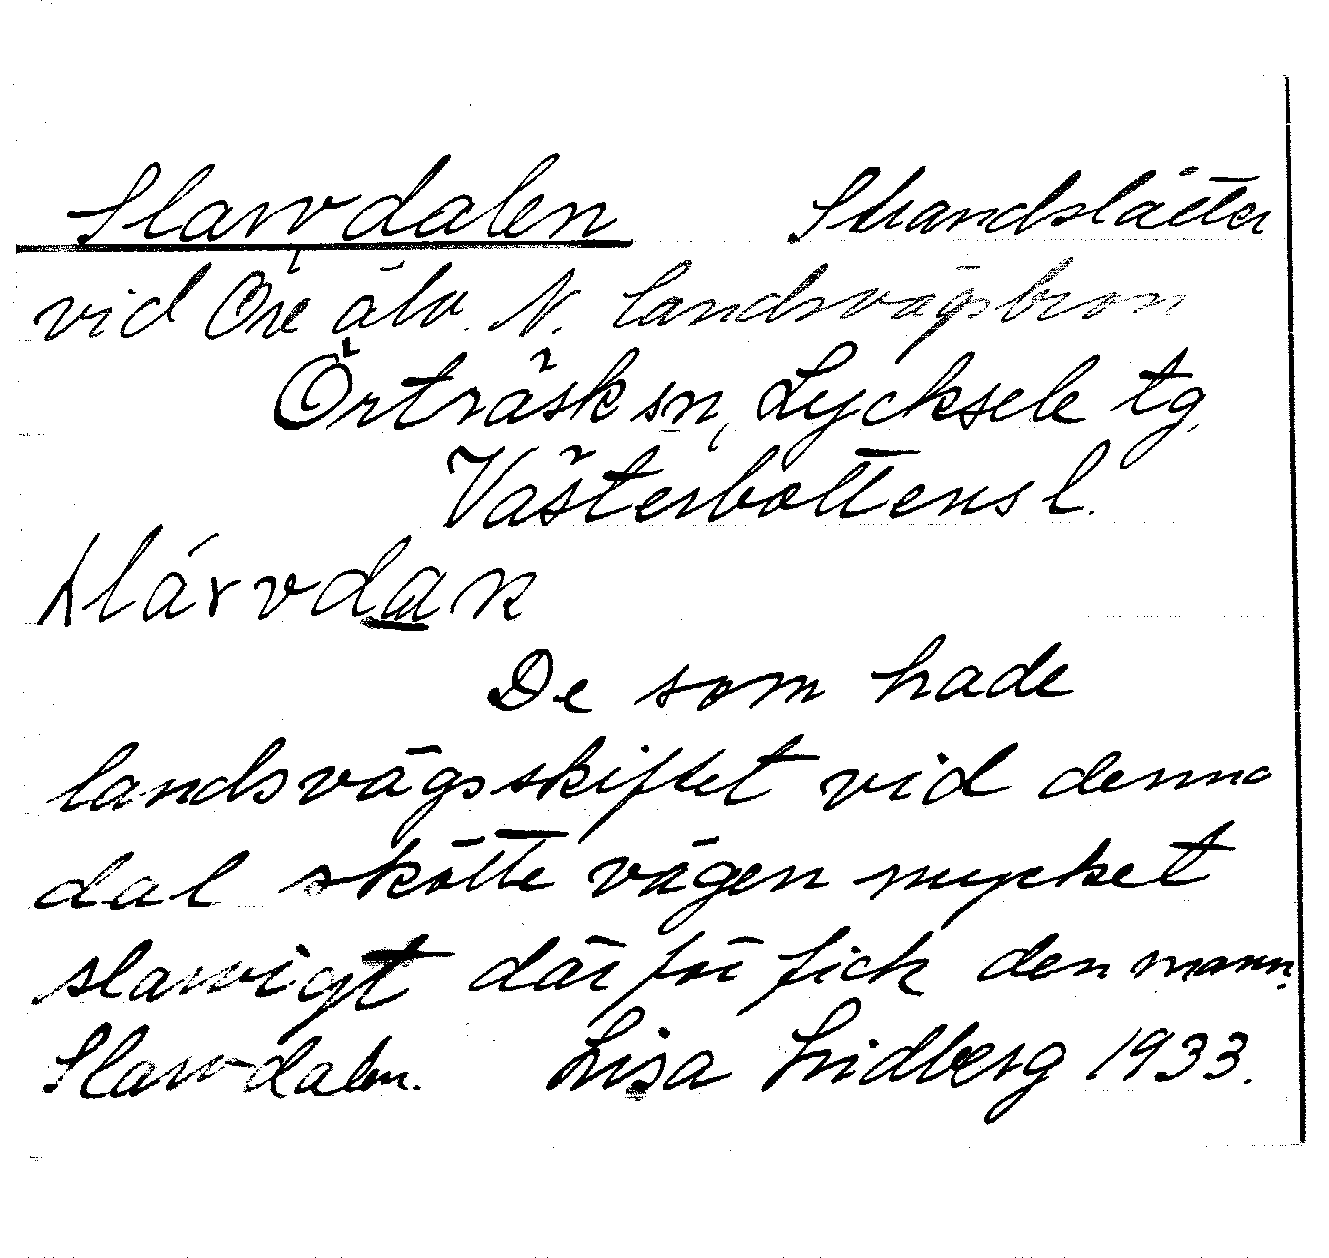 Slarvdalen Strandslåtter
vid Öre älv. N. landsvägsbron
Örträsk sn, Lycksele tg.
Västerbottens l.
slárvdan
De som hade
landsvägsskiftet vid denna
dal skötte vägen mycket
slarvigt därför fick den namn.
Slarvdalen. Lisa Lidberg 1933.